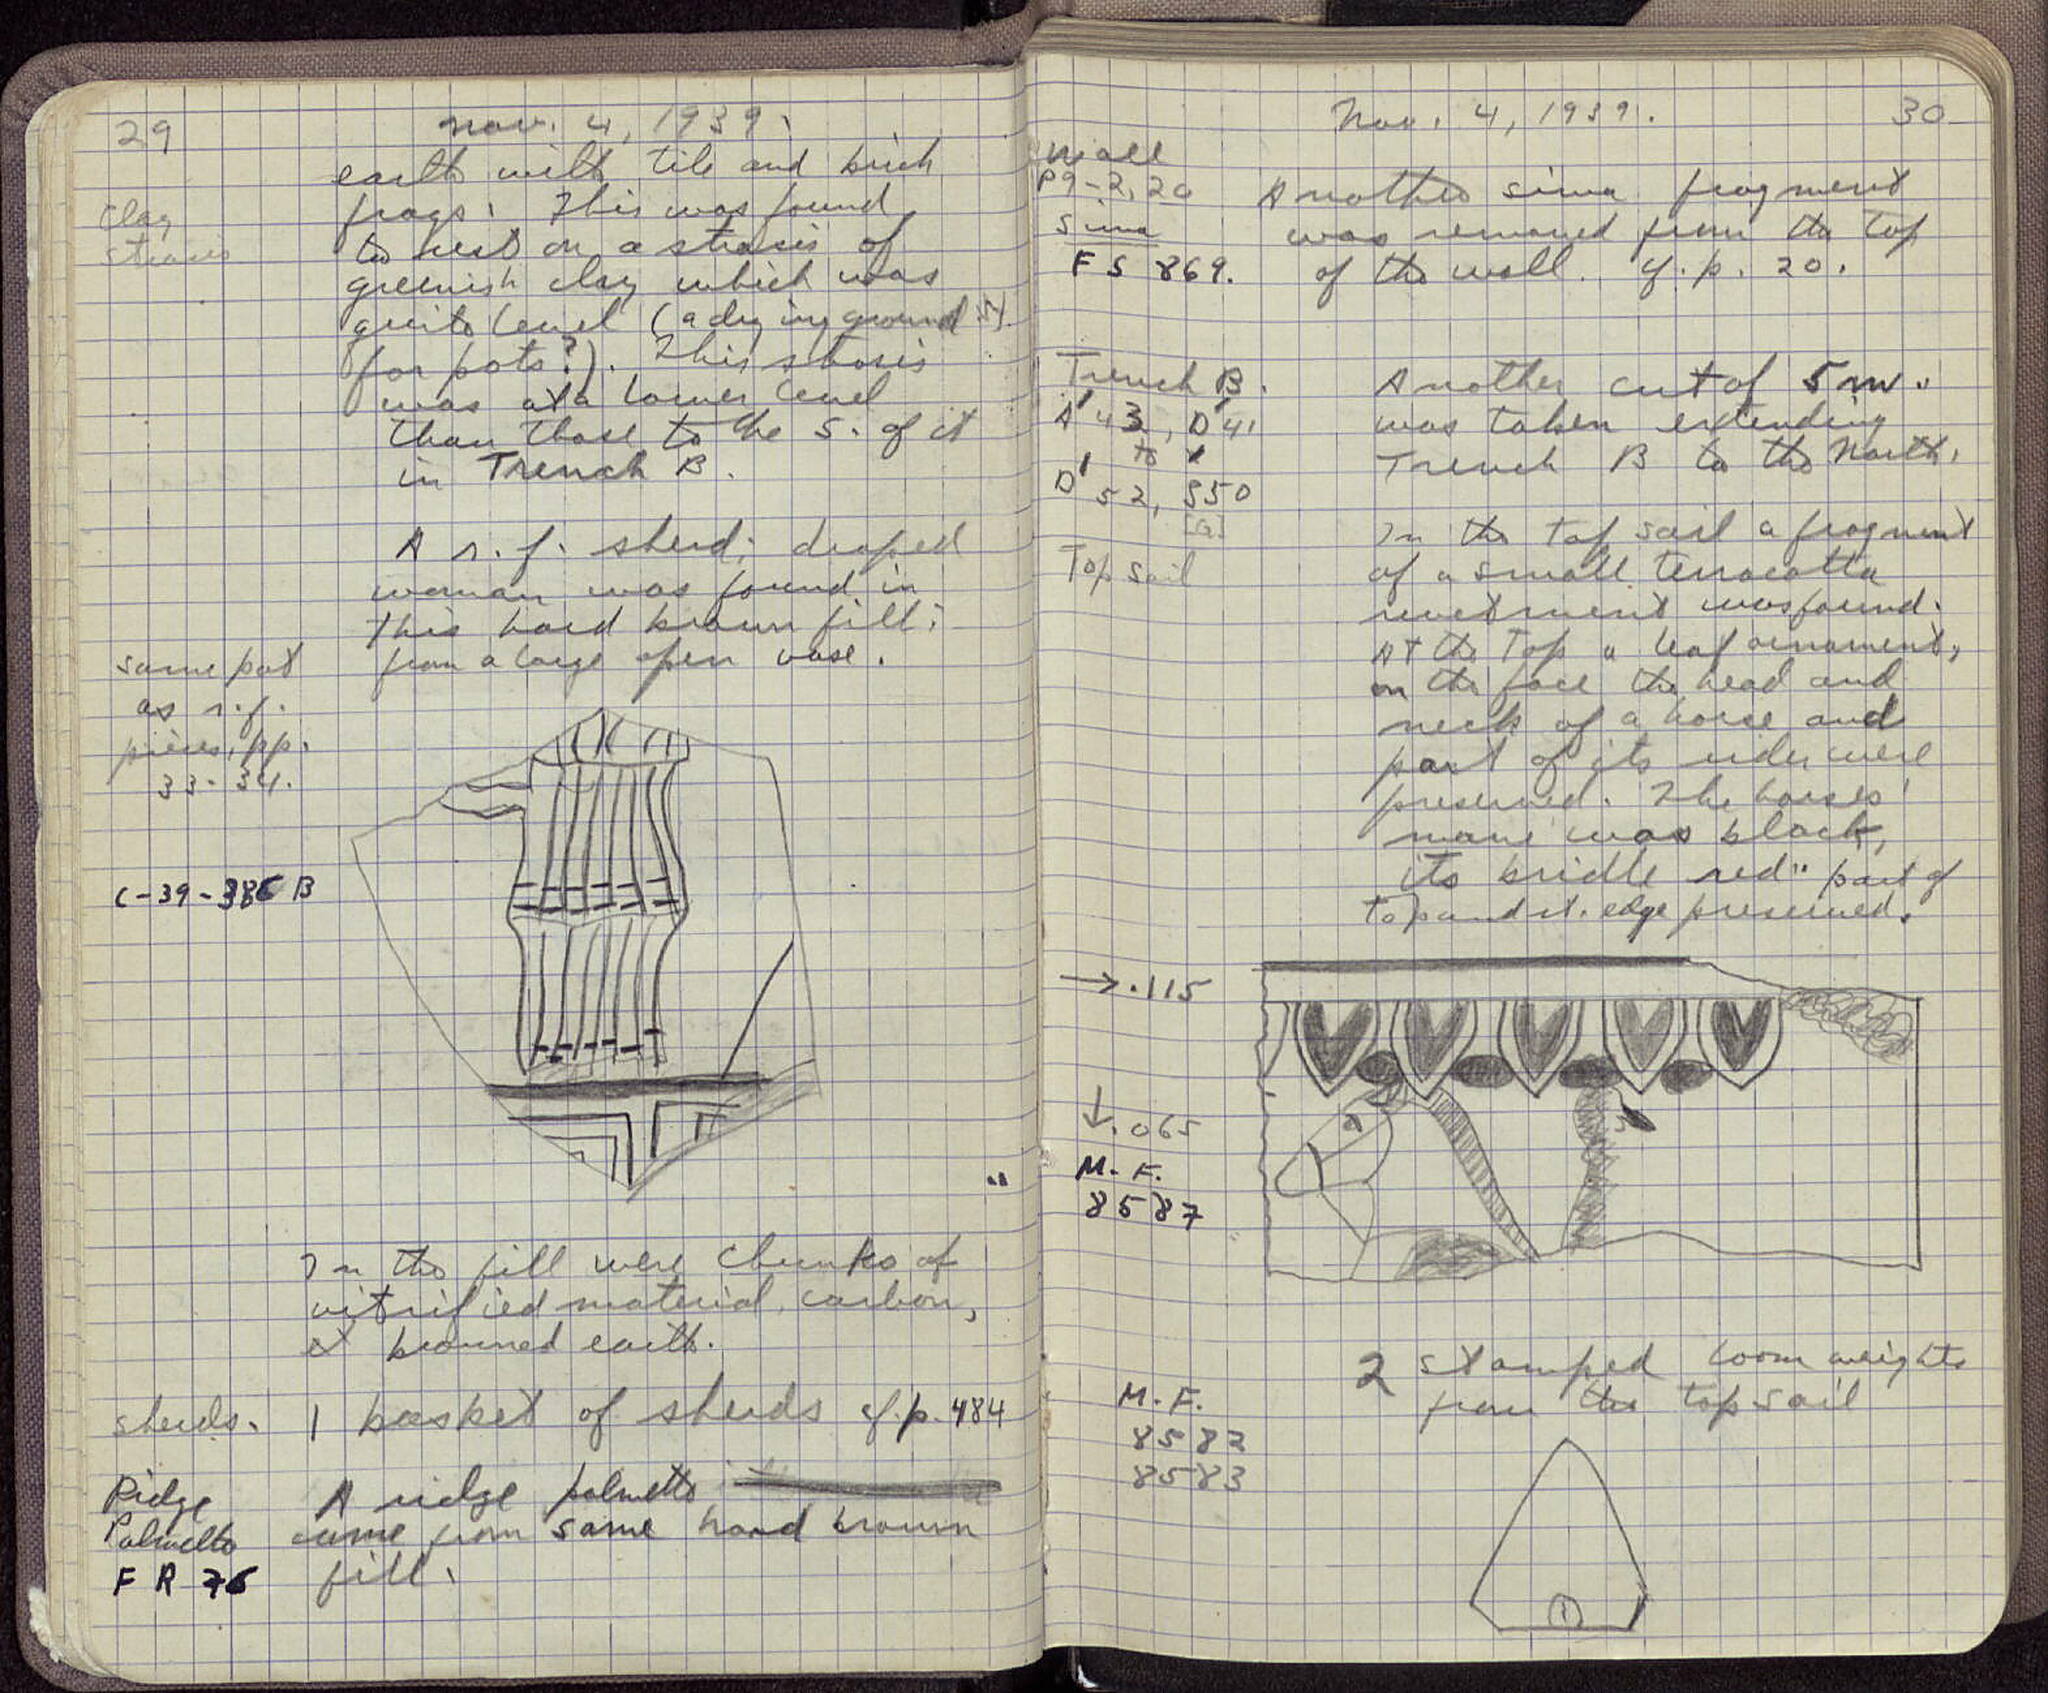 29
Nov. 4, 1939.
earth with tile and brick
frags. This was found
Clay
stosis
to rest on a strosis of
greenish clay which was
quite level (a drying ground
for pots?). This strosis
was at a lower level
than those to the S. of it
in Trench B.
A r.f. sherd; draped
woman was found in
this hard brown fill;
from a large open vase.
same pot
as r.f.
pieces, pp.
33-34.
C-39-386 B
In the fill were chunks of
vitrified material, carbon,
& browned earth.
sherds. 1 basket of sherds cf. p. 484
Ridge
Palmette
F R 76
A ridge palmette
came from same hard brown
fill.
Nov. 4, 1939.
30
Wall
P9-2, 20
Sima
FS 869.
Another sima fragment
was removed from the top
of the wall. cf. p. 20.
Trench B.
A' 43, D' 41
to
D' 52, S50
[G]
Another cut of 5 m.
was taken extending
Trench B to the North.
Top soil
In the top soil a fragment
of a small terracotta
revetment was found.
At the top a leaf ornament,
on the face the head and
neck of a horse and
part of its rider were
preserved. The horses'
mane was black,
its bridle red. part of
top and rt. edge preserved.
→ .115
↓ .065
M. F.
8587
2 stamped loom weights
from the top soil
M. F.
8582
8583